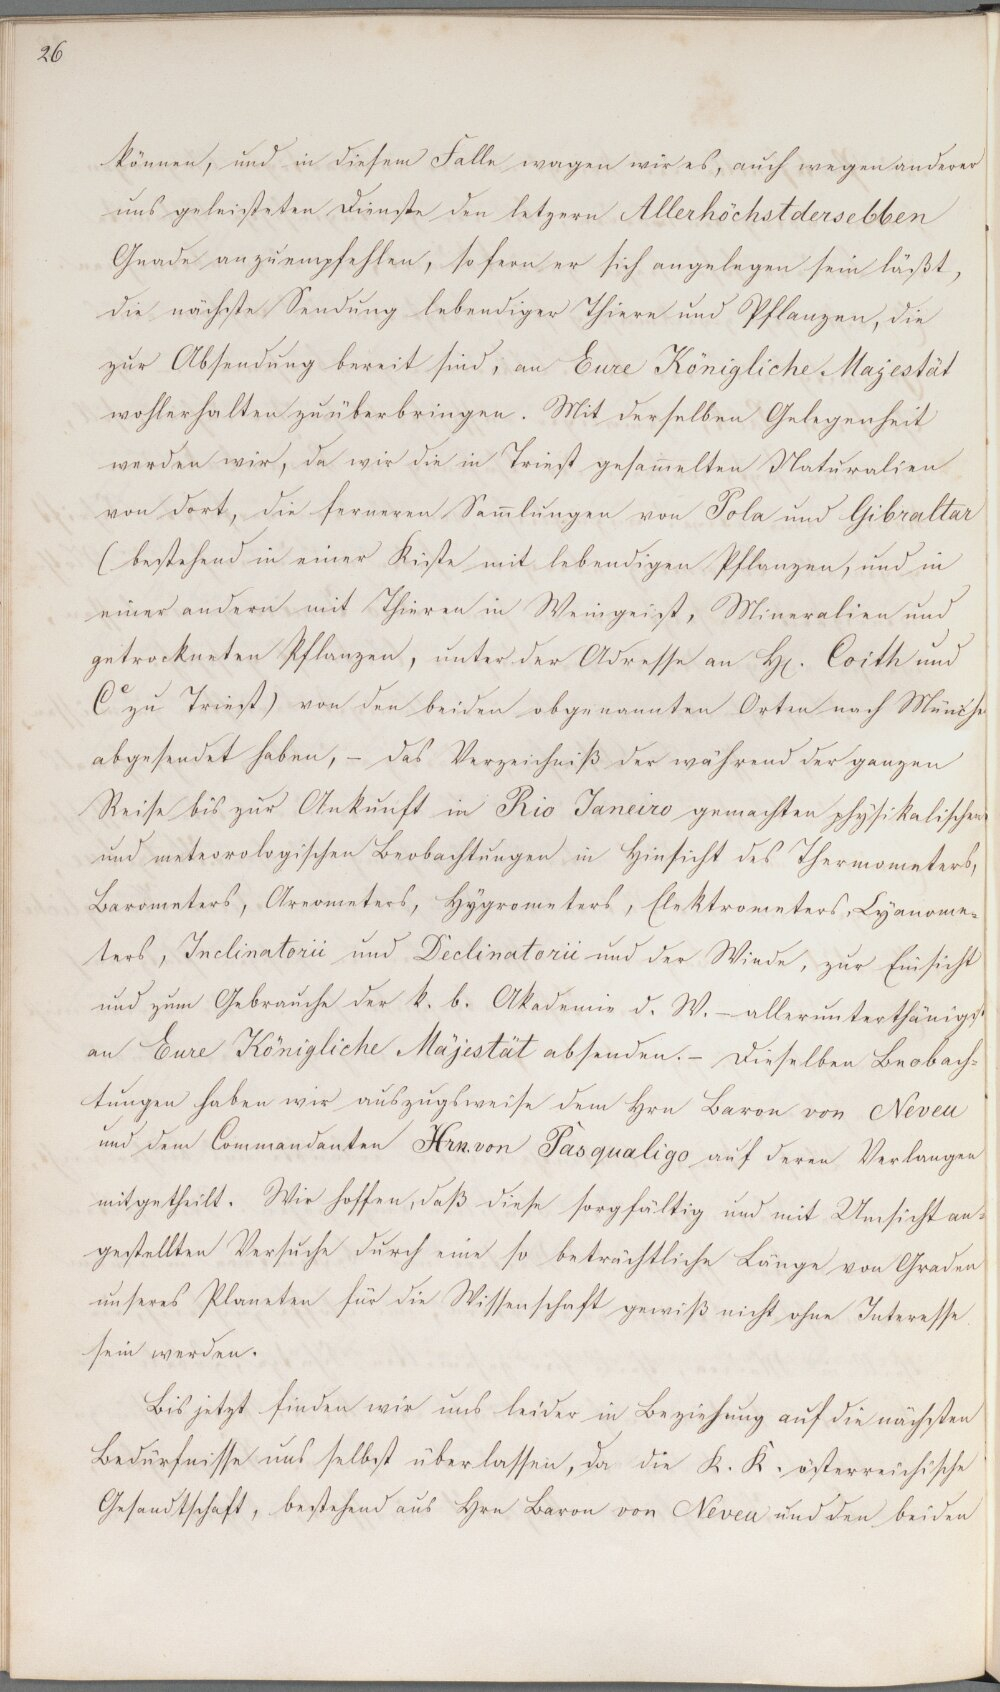 26
können, und in diesem Falle wagen wir es, auch wegen anderer
uns geleisteten Dienste den letzern Allerhöchstderselben
Gnade anzuempfehlen, sofern er sich angelegen sein läßt,
die nächste Sendung lebendiger Thiere und Pflanzen, die
zur Absendung bereit sind, an Eure Königliche Majestät
wohlerhalten zuüberbringen. Mit derselben Gelegenheit
werden wir, da wir die in Triest gesam̅elten Naturalien
von dort, die ferneren Sam̅lungen von Pola und Gibraltar
(bestehend in einer Kiste mit lebendigen Pflanzen, und in
einer andern mit Thieren in Weingeist, Mineralien und
getrockneten Pflanzen, unter der Adresse an H. Coith und
Ce zu Triest) von den beiden obgenannten Orten nach Münche
abgesendet haben, – das Verzeichniß der während der ganzen
Reise bis zur Ankunft in Rio Janeiro gemachten physikalischen
und meteorologischen Beobachtungen in Hinsicht des Thermometers,
Barometers, Areometers, Hygrometers, Elektrometers, Cyanome-
ters, Inclinatorii und Declinatorii und der Winde, zur Einsicht
und zum Gebrauche der k. b. Akademie d. W. – allerunterthänigst
an Eure Königliche Majestät absenden. – Dieselben Beobach-
tungen haben wir auszugsweise dem Hrn Baron von Neveu
und dem Commandanten Hrn. von Pasqualigo auf deren Verlangen
mitgetheilt. Wir hoffen, daß diese sorgfältig und mit Umsicht an-
gestellten Versuche durch eine so beträchtliche Länge von Graden
unseres Planeten für die Wissenschaft gewiß nicht ohne Interesse
sein werden.
Bis jetzt finden wir uns leider in Beziehung auf die nächsten
Bedürfnisse uns selbst überlassen, da die K. K. österreichische
Gesandtschaft, bestehend aus Hrn Baron von Neveu und den beiden